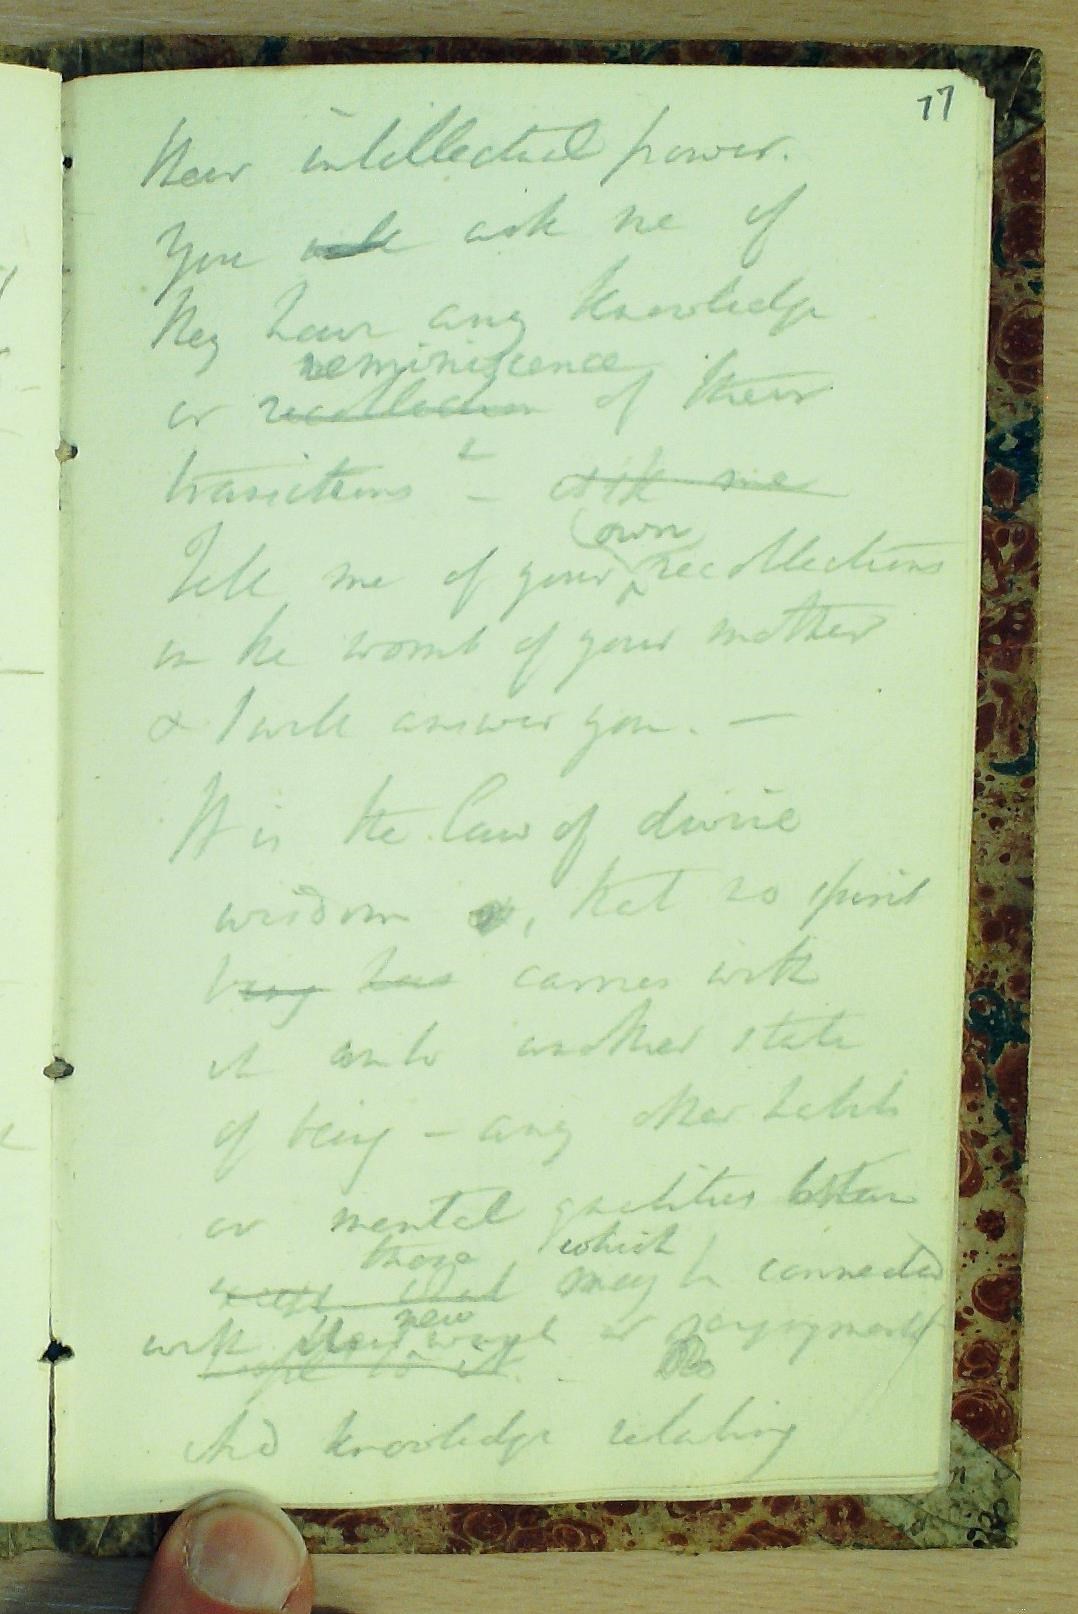 77
their intellectual power.
You will ask me if
they have any knowledge
reminiscence
or recollection of their
transitions - ask me
own
Tell me of your recollections
in the womb of your mother
& I will answer you. —
It is the law of divine
wisdom , that no spirit
being has carries with
it into another state
of being - any other habits
or mental qualities
those which
may be connected
new
with their or enjoyments
And knowledge relating